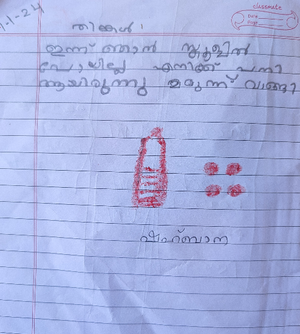 classmate
Date
Page
1-1-24
തിങ്കൾ
ഇന്ന് ഞാൻ സ്കൂളിൽ
പോയില്ല എനിക്ക് പനി
ആയിരുന്നു മരുന്ന് വാങ്ങി
ഷഹ്ബാന